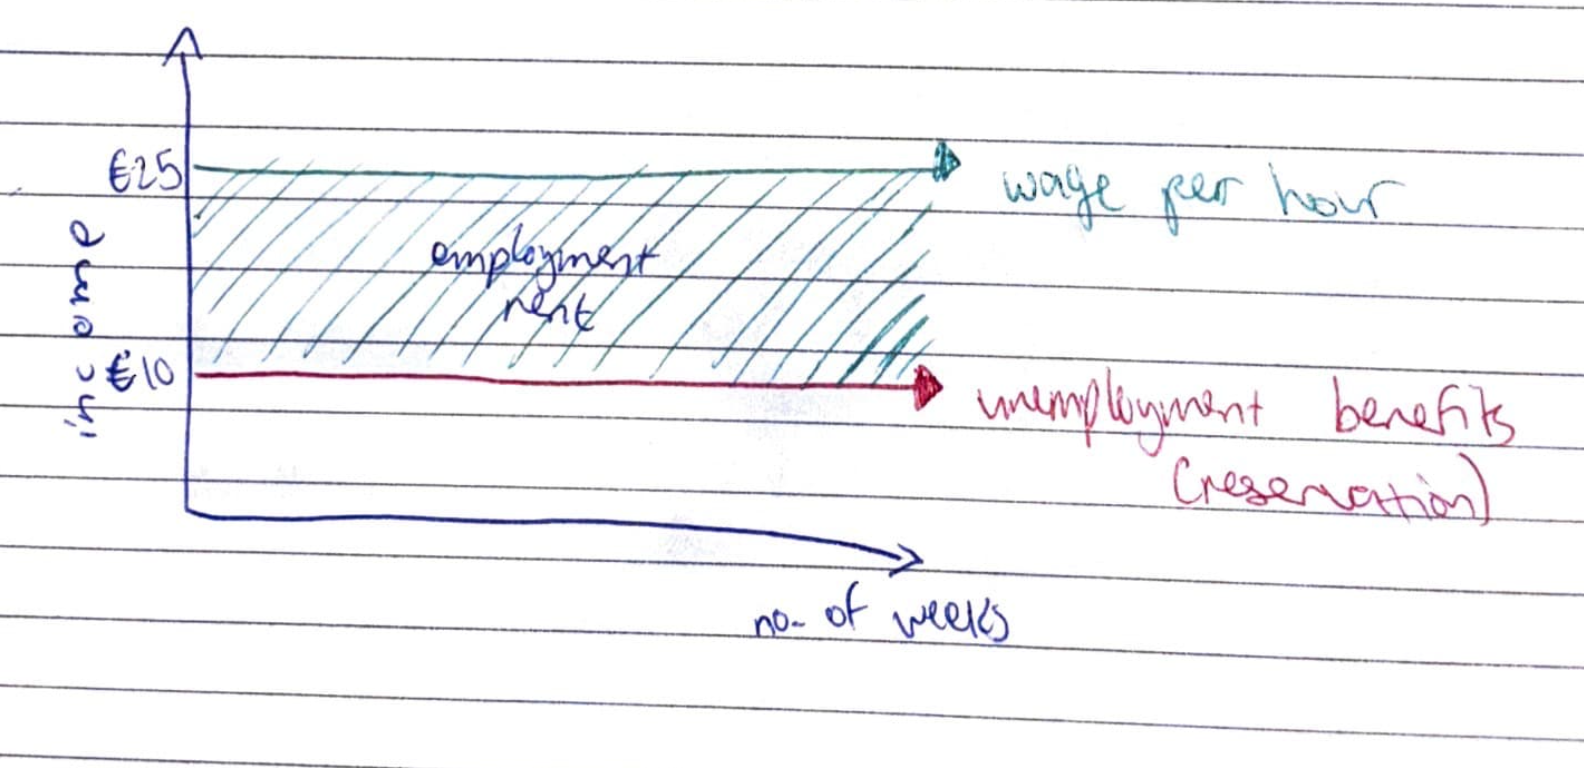 €25
wage per hour
income
employment
rent
€10
unemployment benefits
(reservation)
no. of weeks